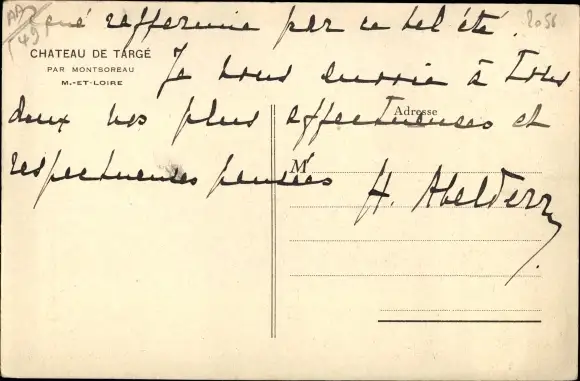 raffermie par ce bel été.
2056
AA
49
CHATEAU DE TARGÉ
PAR MONTSOREAU
M.-ET-LOIRE
Je vous envoie à tous
deux nos plus affectueuses et
Adresse
respectueuses pensées
M
H.